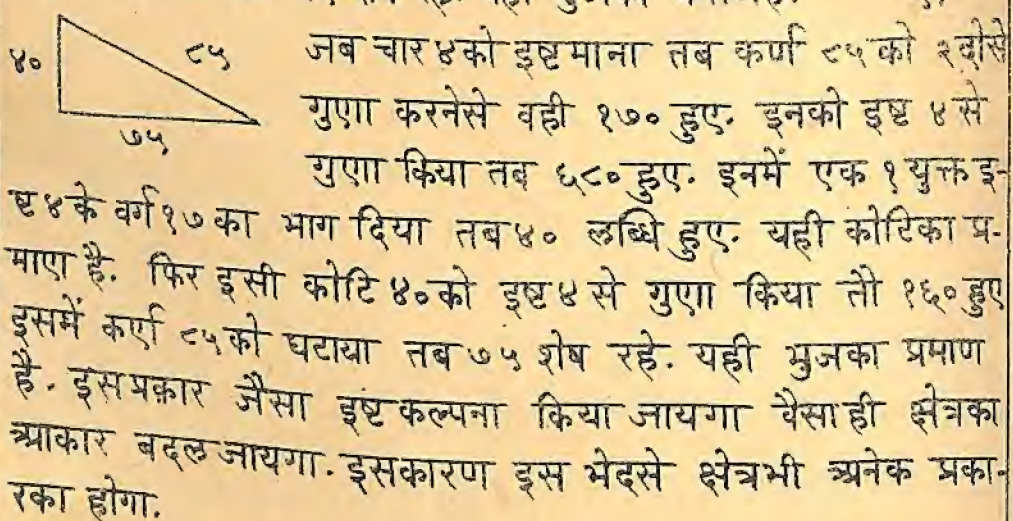 ४० ८५ जब चार ४ को इष्ट माना तब कर्ण ८५ को २ दोसे
७५ गुणा करनेसे वही १७० हुए. इनको इष्ट ४ से
गुणा किया तब ६८० हुए. इनमें एक १ युक्त इ-
ष्ट ४ के वर्ग १७ का भाग दिया तब ४० लब्धि हुए. यही कोटिका प्र-
माण है. फिर इसी कोटि ४० को इष्ट ४ से गुणा किया तौ १६० हुए
इसमें कर्ण ८५ को घटाया तब ७५ शेष रहे. यही भुजका प्रमाण
है. इसप्रकार जैसा इष्ट कल्पना किया जायगा वैसाही क्षेत्रका
आकार बदल जायगा. इसकारण इस भेदसे क्षेत्रभी अनेक प्रका-
रका होगा.